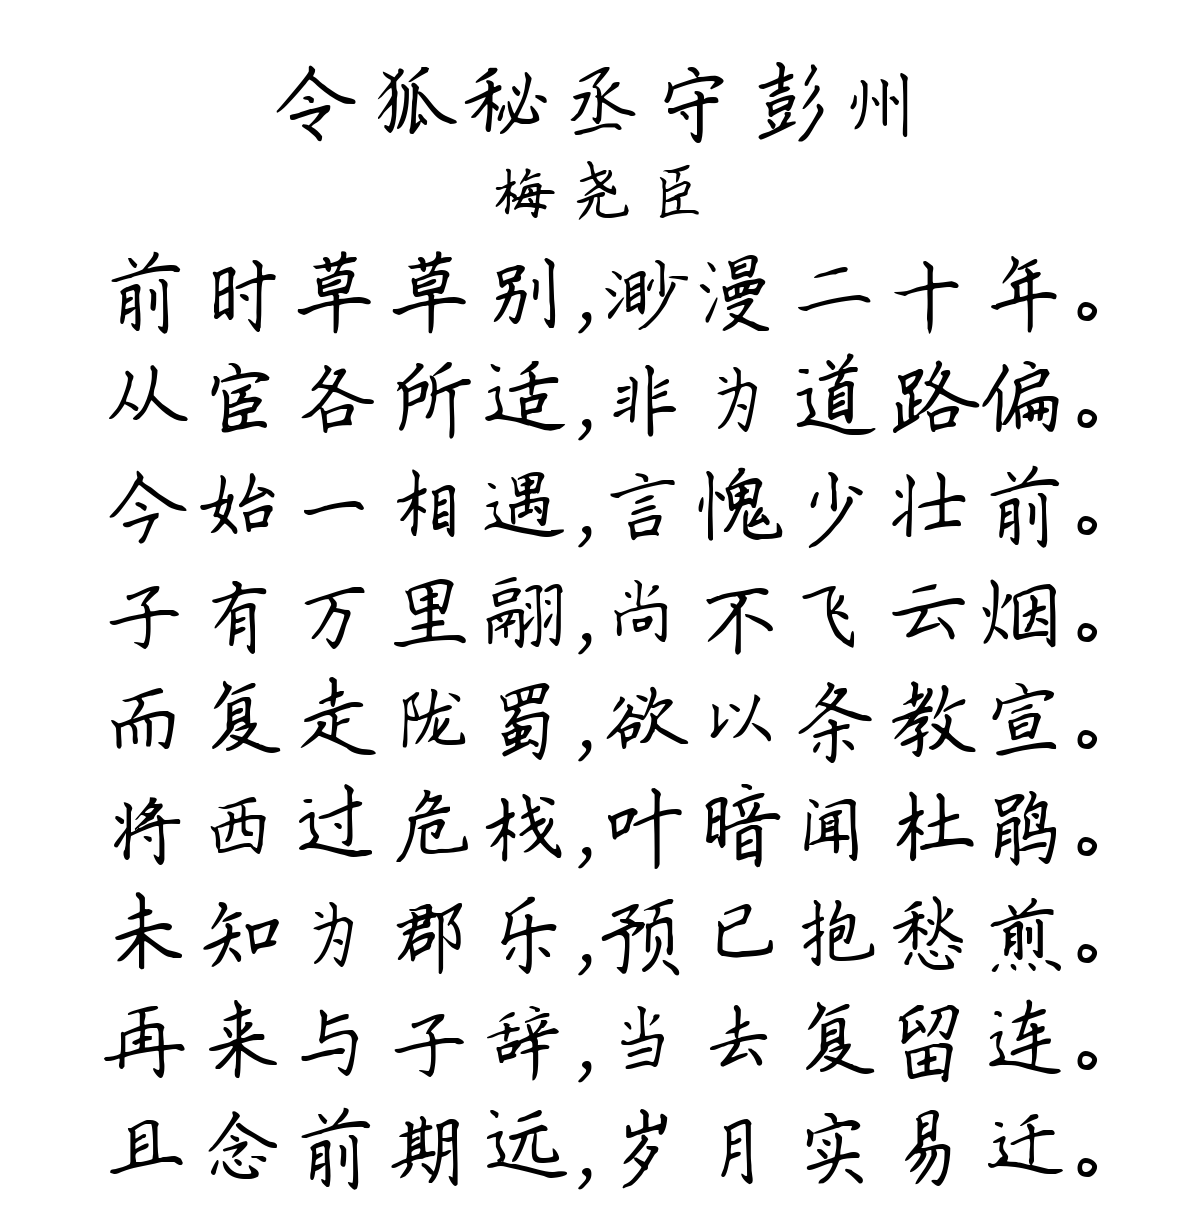 令狐秘丞守彭州
梅尧臣
前时草草别,渺漫二十年。
从宦各所适,非为道路偏。
今始一相遇,言愧少壮前。
子有万里翮,尚不飞云烟。
而复走陇蜀,欲以条教宣。
将西过危栈,叶暗闻杜鹃。
未知为郡乐,预已抱愁煎。
再来与子辞,当去复留连。
且念前期远,岁月实易迁。